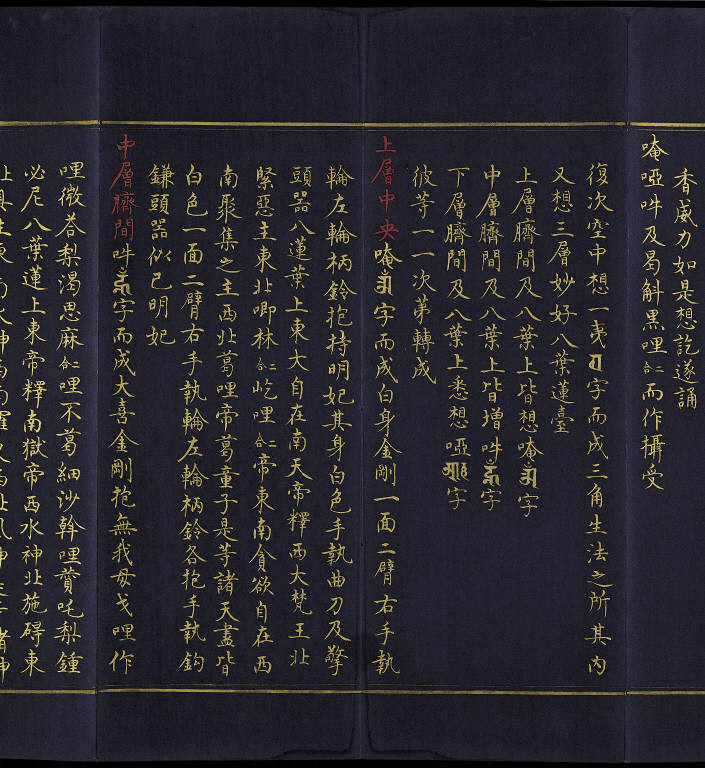 香威力如是想訖遂誦
唵啞吽及曷斛黑哩二合而作攝受
復次空中想一夷字而成三角生法之所其內
又想三層妙好八葉蓮臺
上層臍間及八葉上皆想唵字
中層臍間及八葉上皆增吽字
下層臍間及八葉上悉想啞字
彼等一一次第轉成
上層中央唵字而成白身金剛一面二臂右手執
輪左輪柄鈴抱持明妃其身白色手執曲刀及擎
頭器八蓮葉上東大自在南天帝釋西大梵王北
緊惡主東北唧林二合屹哩二合帝東南貪欲自在西
南聚集之主西北葛哩帝葛童子是等諸天盡皆
白色一面二臂右手執輪左輪柄鈴各抱手執鈎
鎌頭器似已明妃
中層臍間吽字而成大喜金剛抱無我母戈哩作
哩微荅梨渴思麻二合哩不葛細沙斡哩贊吒梨鍾
必尼八葉蓮上東帝釋南獄帝西水神北施碍東